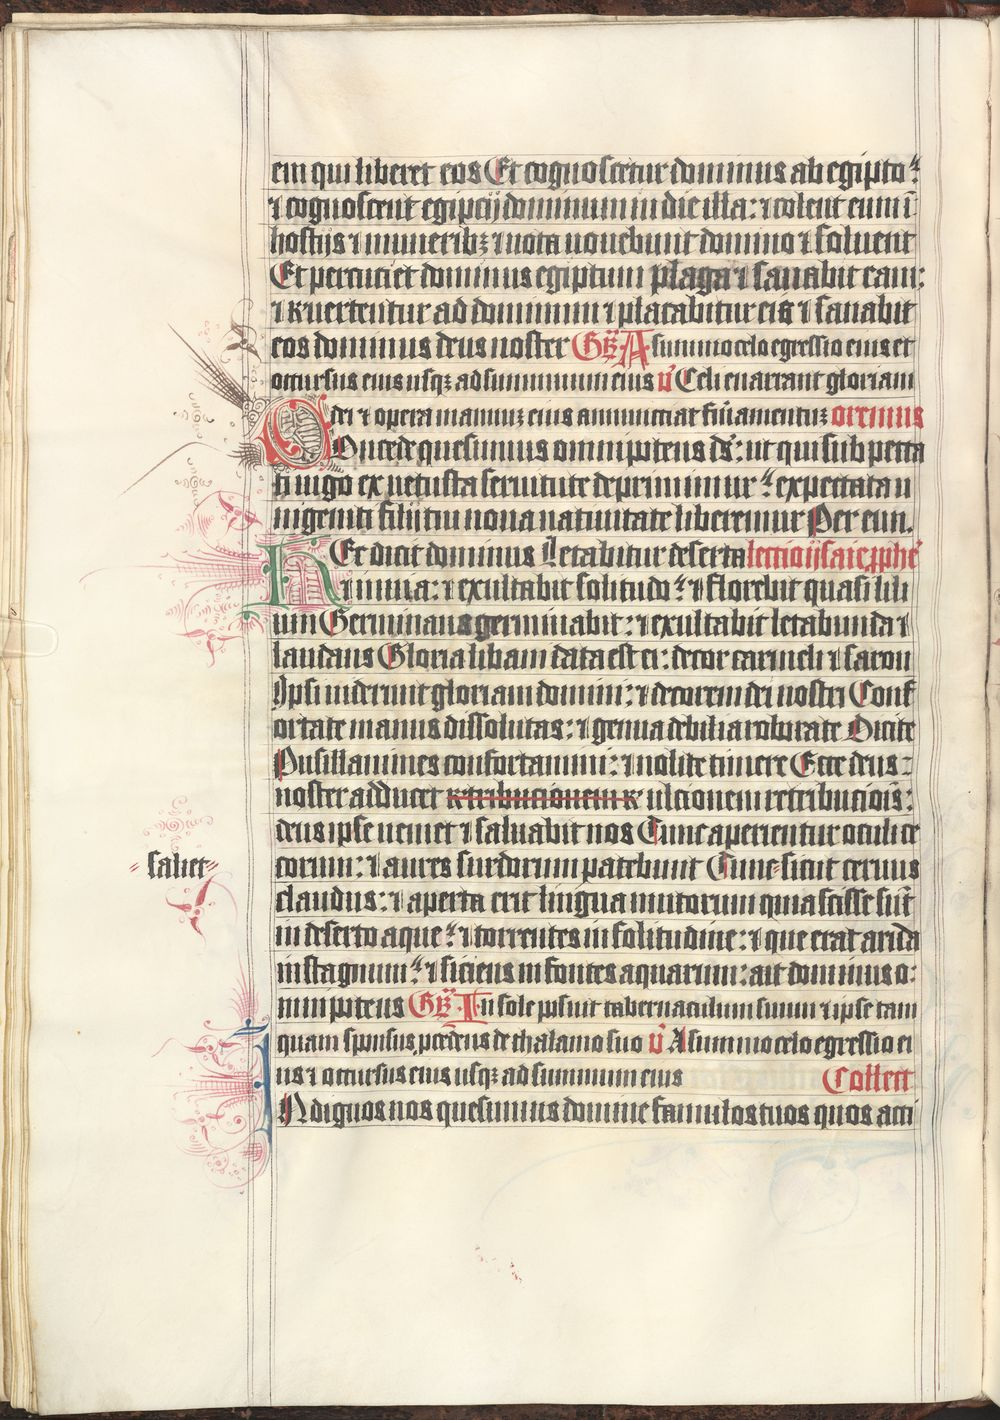 em qui liberet eos Et cognoscetur dominus ab egipto
⁊ cognoscent egipcij dominum in die illa: ⁊ colent eum ī
hostijs ⁊ muneribꝫ ⁊ uota uouebunt domino ⁊ soluent
Et percuciet dominus egiptum plaga ⁊ sanabit eam:
⁊ reuertentur ad dominum ⁊ placabitur eis ⁊ sanabit
eos dominus deus noster Gr̄ A summo celo egressio eius et
occursus eius usqꝫ ad summum eius v̄ Celi enarrant gloriam
dei ⁊ opera manuū eius annunciat firmamentuꝫ oremus
Concede quesumus omnipotens ds̄: ut qui sub pecca
ti iugo ex uetusta seruitute deprimimur expectata u
nigeniti filij tui noua natiuitate liberemur Per eun.
Hec dicit dominus Letabitur deserta lectio ysaie ꝓphē
⁊ inuia: ⁊ exultabit solitudo ⁊ florebit quasi lili
um Germinans germinabit: ⁊ exultabit letabunda ⁊
laudans Gloria libani data est ei: decor carmeli ⁊ saron
Ipsi uiderunt gloriam domini: ⁊ decorem dei nostri Conf
ortate manus dissolutas: ⁊ genua debilia roborate Dicite
Pusillanimes confortamini: ⁊ nolite timere Ecce deus
noster adducet retribucionem r ulcionem retribucioīs:
deus ipse ueniet ⁊ saluabit nos Tunc aperientur oculi ce
corum: ⁊ aures surdorum patebunt Tunc sicut ceruus
saliet
claudus: ⁊ aperta erit lingua mutorum quia scisse sūt
in deserto aque ⁊ torrentes in solitudine: ⁊ que erat arida
in stagnum ⁊ siciens in fontes aquarum: ait dominus o
mnipotens Gr̄ In sole posuit tabernaculum suum ⁊ ipse tam
quam sponsus ꝓcedens de thalamo suo v̄ A summo celo egressio ei
us ⁊ occursus eius usqꝫ ad summum eius Collect
Indignos nos quesumus domine famulos tuos quos acci